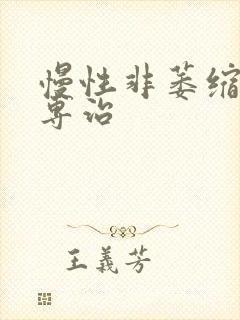 慢性非萎缩
专治
王義芳